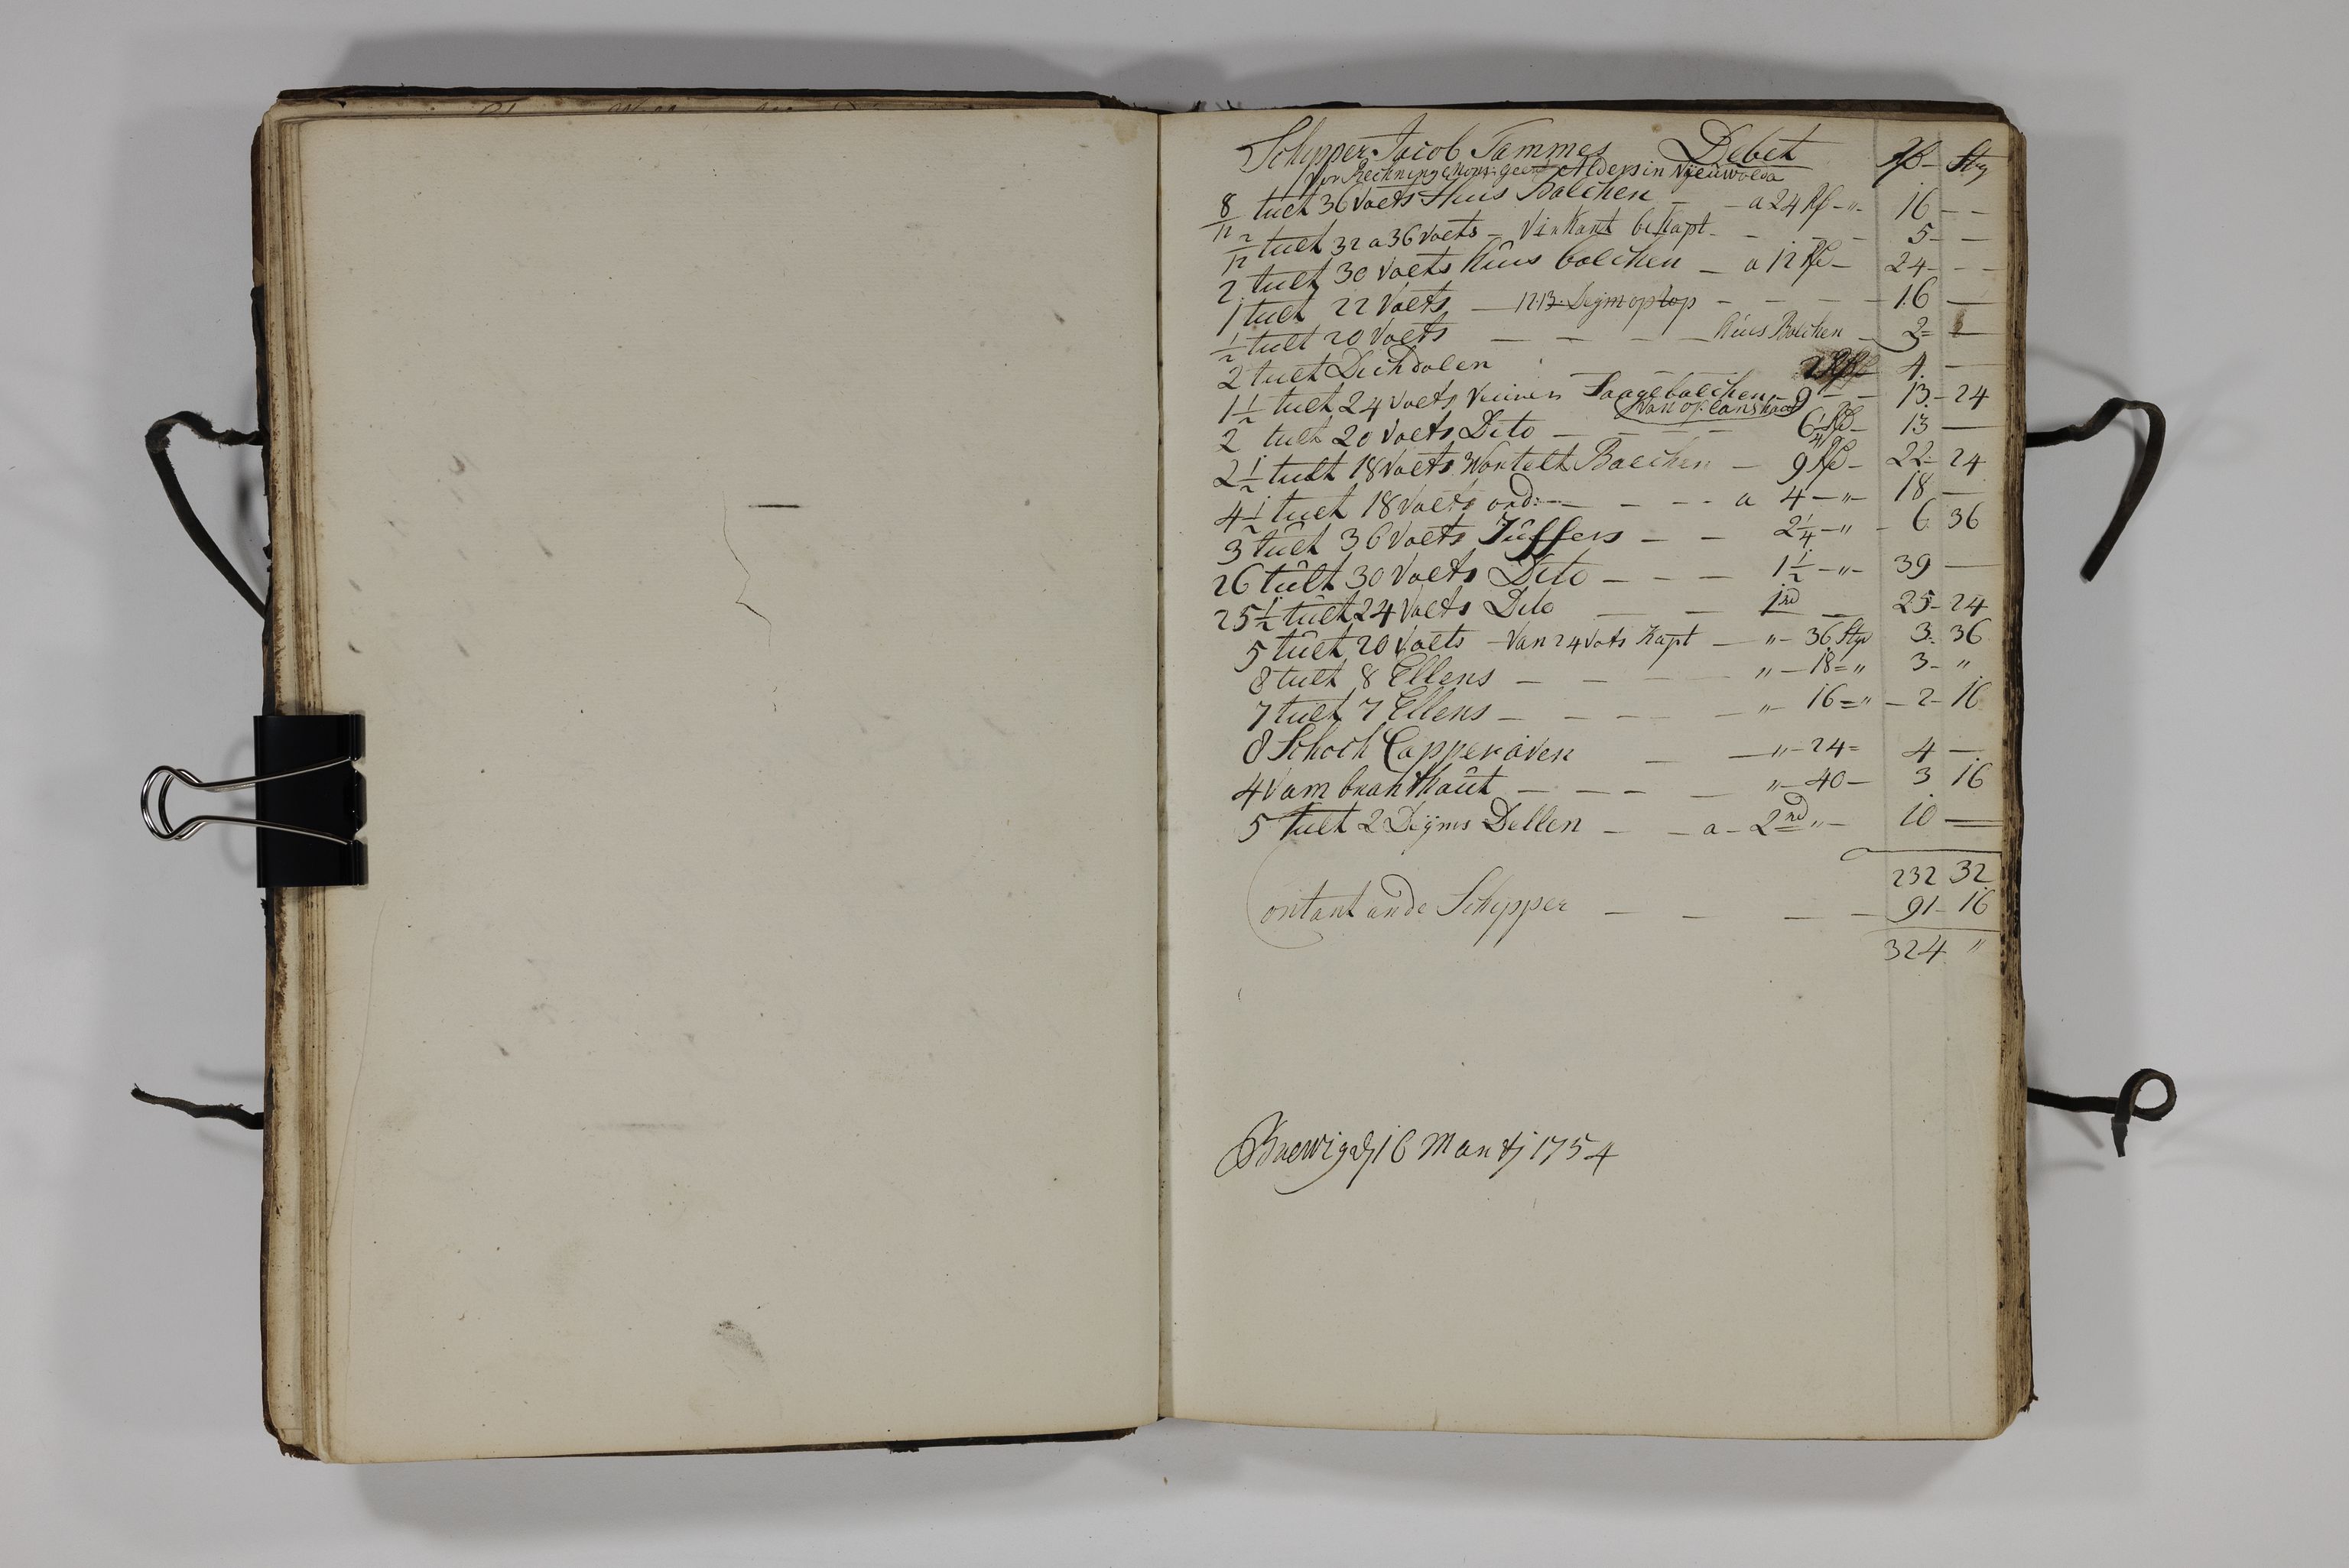 Schipper Jacob Tammes Debet Rß Stÿ
Vor Rechning Mons: Geert Alders in Nijeuwolda
8/12 tult 36 Voets Huus Balcken a 24 Rß 16 —
2/12 tult 32 a 36 Voets — Virkant bekapt 5 —
2 tult 30 Voets huus balcken — a 12 Rß — 24 —
1 tult 22 Voets — 12 13 Dijm op top — 16 —
1/2 tult 20 Voets — Huus Balcken — 2 —
2 tult Dickdalen 4 —
1 1/2 tult 24 Voets Vuiren Saagebalcken 9 — 13 — 24
2 tult 20 Voets Dito — 6 1/2 Rß — 13 —
2 1/2 tult 18 Voets Wortelt Balcken — 9 Rß — 22 — 24
4 1/2 tult 18 Voets ord: — a 4 — " — 18 —
3 tult 36 Voets Juffers — 2 1/4 — " — 6 36
26 tult 30 Voets Dito — 1 1/2 — " — 39 —
25 1/2 tult 24 Voets Dito — 1 rd — 25 — 24
5 tult 20 Voets — Van 24 Vots Kapt — " — 36 Styv 3 36
8 tult 8 Ellens — " — 18 = " 3 — "
7 tult 7 Ellens — " — 16 = " — 2 — 16
8 Schock Capperaven — " — 24 = 4 —
4 Vam branthout — " — 40 — 3 16
5 tult 2 Dijms Dellen — a — 2 rd " — 10 —
232 32
Contant an de Schipper — 91 — 16
324 "
Braewig dÿ 16 Martÿ 1754